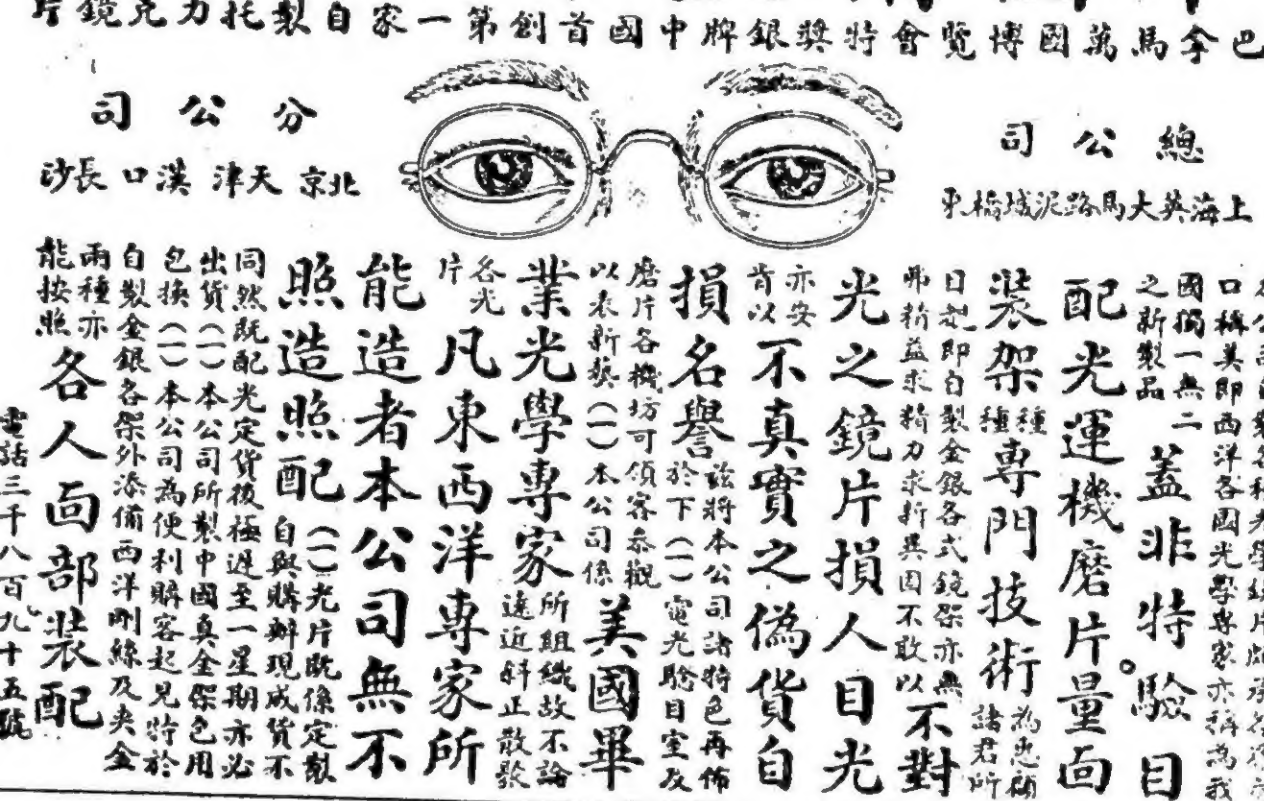 巴拿馬萬國博覽會特獎銀牌中國首創第一家自製托力克鏡片
總公司
上海英大馬路泥城橋東
分公司
北京 天津 漢口 長沙
口稱美即西洋各國光學專家亦稱為我
國獨一無二
之新製品
蓋非特驗目
配光運機磨片量面
裝架種種專門技術
為惠顧
諸君所
日起即自製金銀各式鏡架亦無
弗精益求精力求新異因不敢以不對
光之鏡片損人目光
亦安
肯以
不真實之偽貨自
損名譽
茲將本公司諸特色再佈
於下(一)電光驗目室及
磨片各機坊可領客參觀
以表新藝(一)本公司係美國畢
業光學專家
所組織故不論
遠近斜正散
各光
片
凡東西洋專家所
能造者本公司無不
照造照配
(一)光片既係定製
自與購辦現成貨不
同然既配光定貨後極遲至一星期亦必
出貨(一)本公司所製中國真金架包用
包換(一)本公司為便利購客起見特於
自製金銀各架外添備西洋剛絲及夾金
兩種亦
能按照
各人面部裝配
電話三千八百九十五號